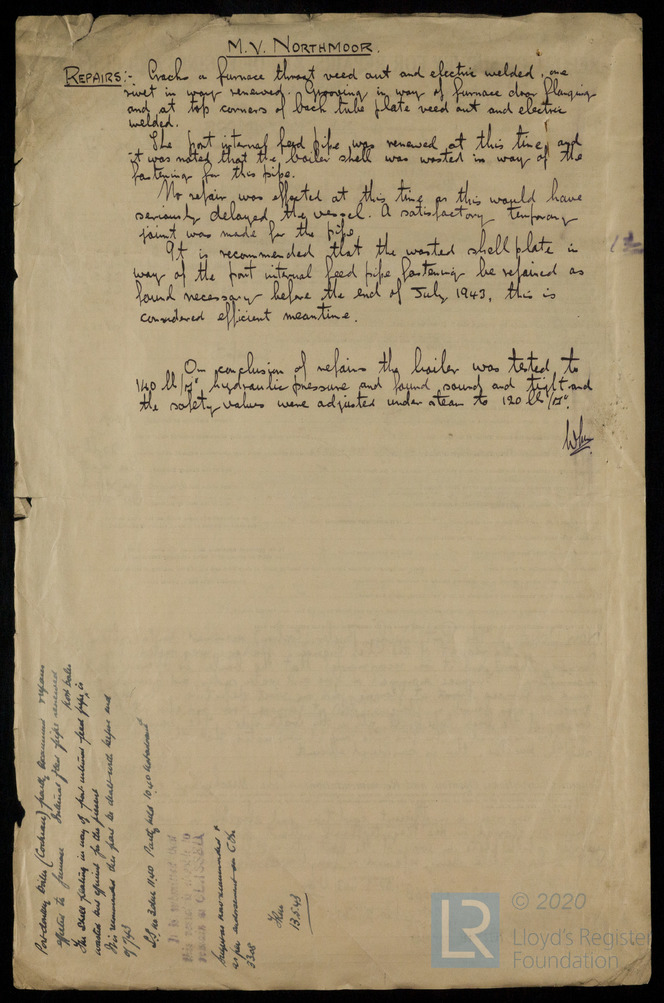 M.V. NORTHMOOR.
REPAIRS:- Cracks a furnace throat veed out and electric welded, one
rivet in way renewed. Grooving in way of furnace door flanging
and at top corners of back tube plate veed out and electric
welded.
The port internal feed pipe was renewed at this time, and
it was noted that the boiler shell was wasted in way of the
fastening for this pipe.
No repair was effected at this time as this would have
seriously delayed the vessel. A satisfactory temporary
joint was made for the pipe.
It is recommended that the wasted shell plate in
way of the port internal feed pipe fastening be repaired as
found necessary before the end of July 1943, this is
considered efficient meantime.
On conclusion of repairs the boiler was tested to
140 lb/□" hydraulic pressure and found sound and tight and
the safety valves were adjusted under steam to 120 lb/□".
Port donkey boiler (Cochran) partly examined repairs
effected to furnace Internal feed pipe renewed
port boiler
The shell plating in way of port internal feed pipe is
wasted but efficient for the present
It is recommended this part be dealt with before end
of 7.43
as per endorsement on
13.5.43
© 2020
LR
Lloyd's Register
Foundation